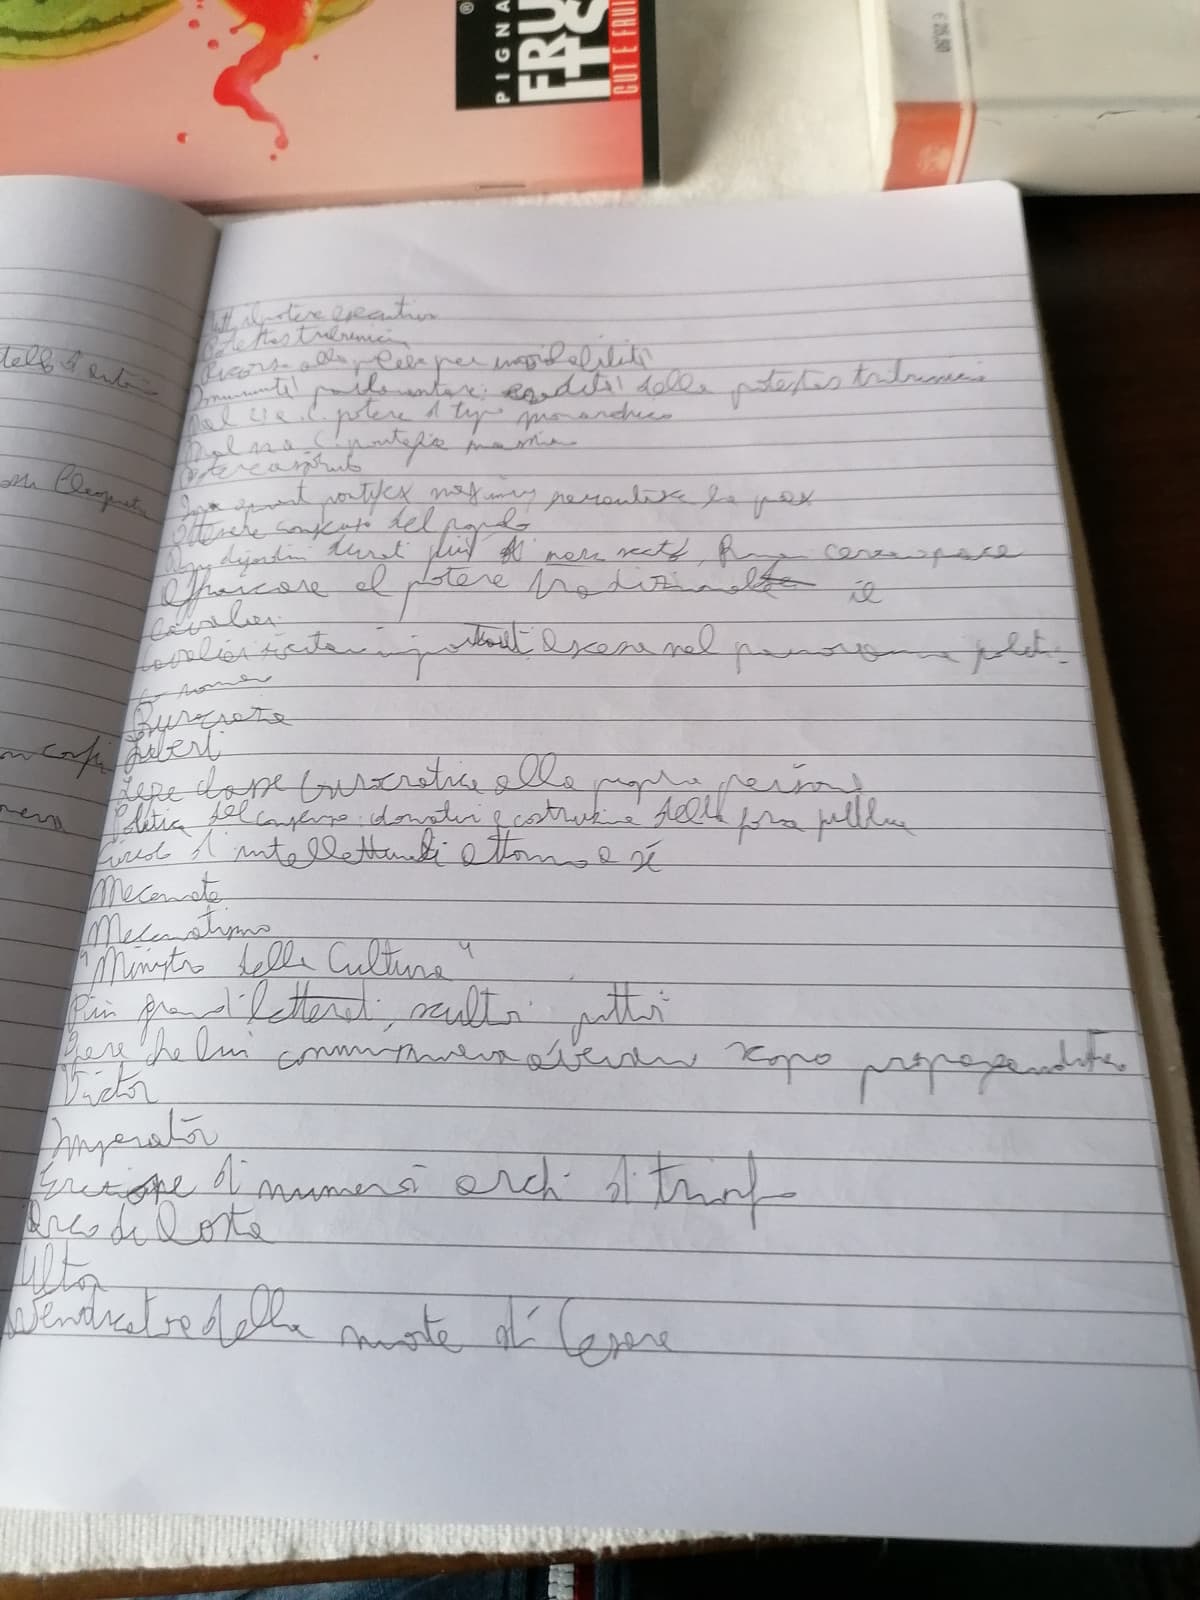 PIGNA
®
FRUITS
GUT E FRUI
€ 26,80
il potere esecutivo
Potestas tribunicia
Ricorso alla plebe per
Immunità parlamentare: eredità della potestas tribunicia
Dal a.C. potere di tipo monarchico
Dal a.C. pontefice massimo
Potere assoluto
pontifex maximus garantire la pax
Ottenere consenso del popolo
Dopo disordini durati più di mezzo secolo, Roma cerca pace
Affiancare al potere tradizionale il
Cavalieri
Cavalieri importanti ascesa nel panorama politi-
co romano
Burocrazia
Liberti
Lega classe burocratica alla propria persona
Politica del consenso: donativi e costruzione della forza pubblica
Circolo di intellettuali attorno a sé
Mecenate
Mecenatismo
"Ministro della Cultura"
Più grandi letterati, scultori pittori
Opere che lui commissionava avevano scopo propagandistico
Victor
Imperator
Erezione di numerosi archi di trionfo
Arco di Aosta
Ultor
Vendicatore della morte di Cesare
Cleopatra